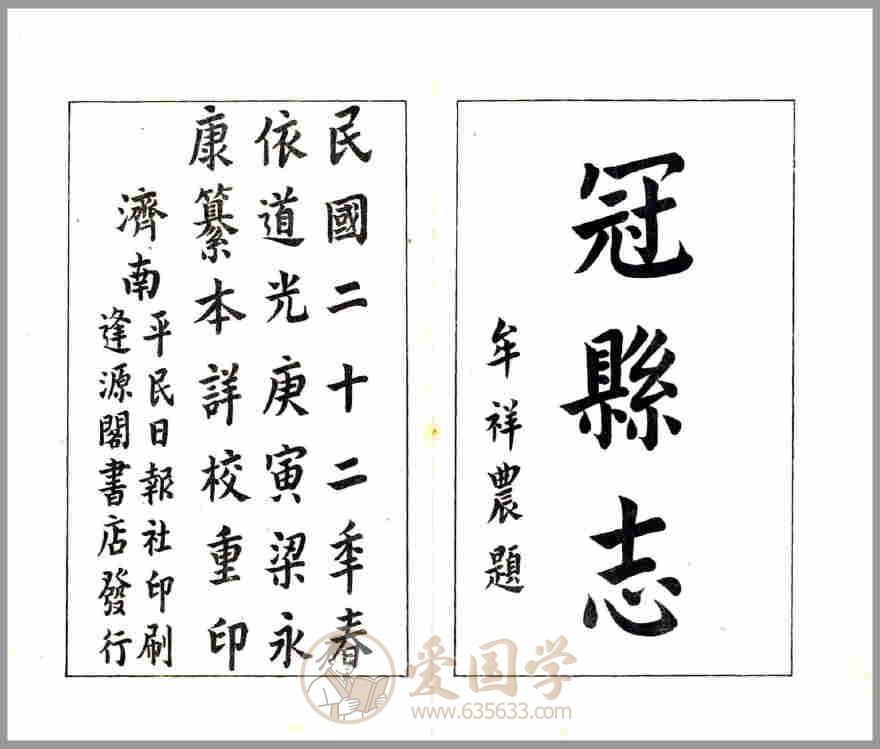 冠縣志
牟祥農題
民國二十二秊春
依道光庚寅梁永
康纂本詳校重印
濟南
平民日報社印刷
逢源閣書店發行
爱国学
www.635633.com